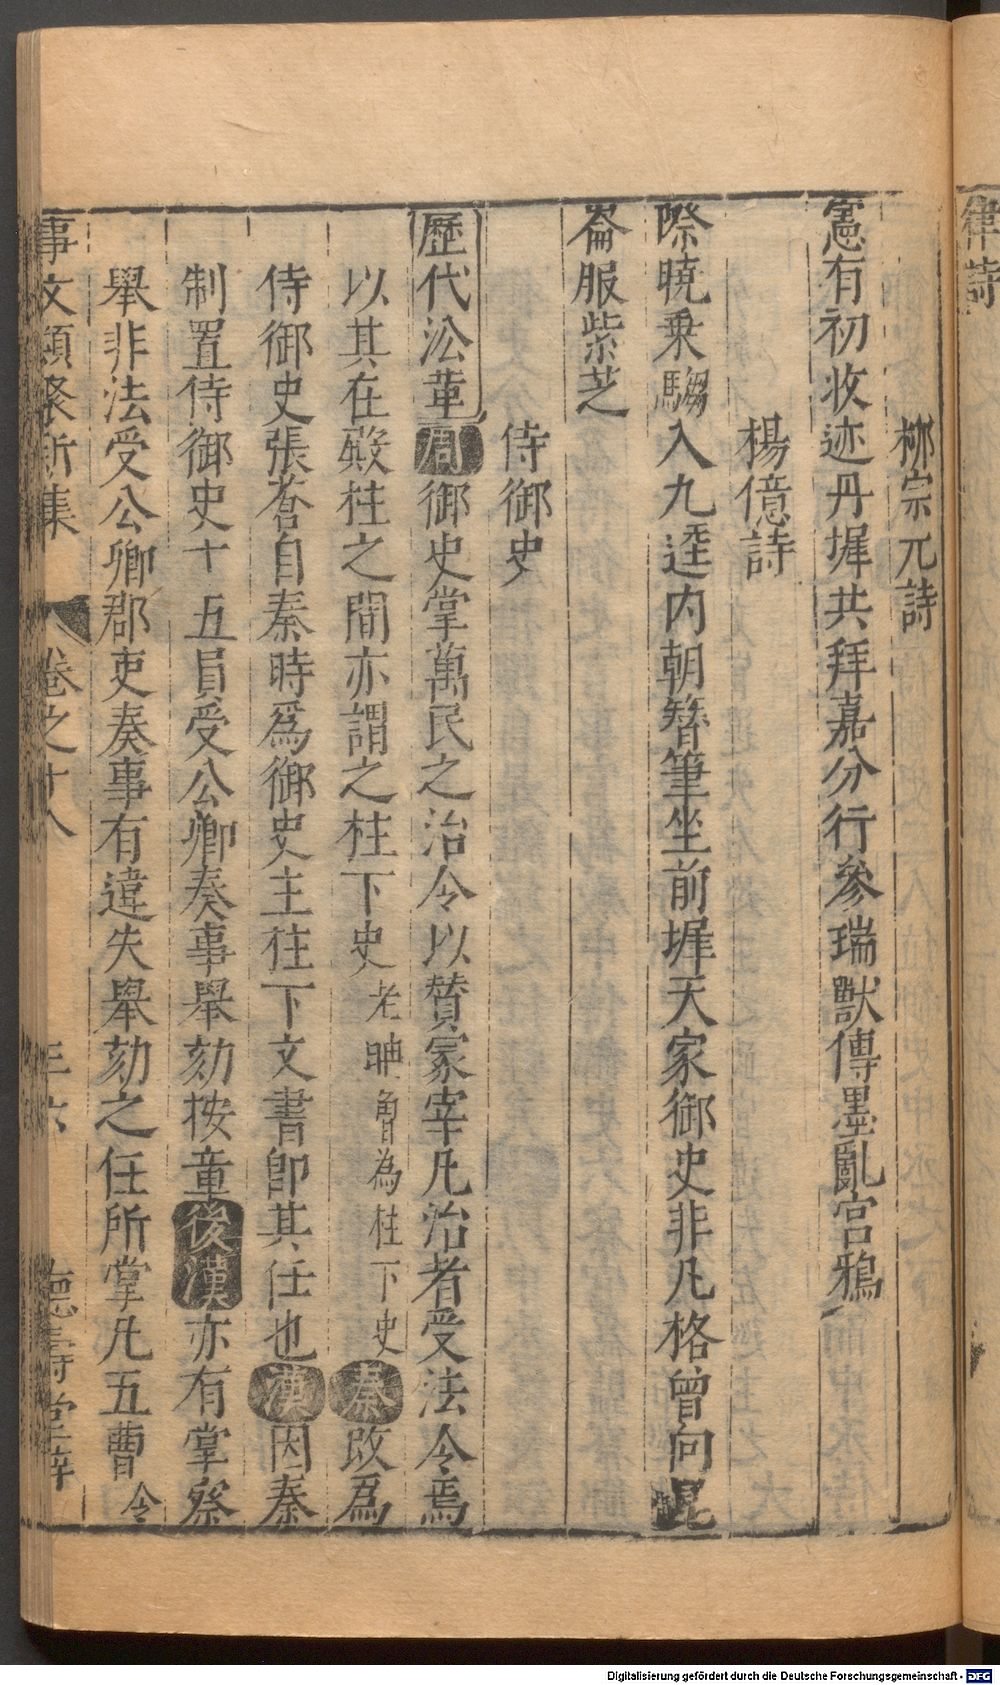 律詩
柳宗元詩
憲有初收迹丹墀共拜嘉分行參瑞獸傳墨亂宮鴉
楊億詩
際曉乗騶入九逵内朝簪筆坐前墀天家御史非凡格曾向崑
崙服紫芝
侍御史
歷代㳂革周御史掌萬民之治令以賛冡宰凡治者受法令焉
以其在殿柱之間亦謂之柱下史老聃嘗為柱下史秦改爲
侍御史張蒼自秦時爲御史主柱下文書卽其任也漢因秦
制置侍御史十五員受公卿奏事舉劾按章後漢亦有掌察
舉非法受公卿郡吏奏事有違失舉劾之任所掌凡五曹令
事文類聚新集 卷之十八 三六 德壽堂梓
Digitalisierung gefördert durch die Deutsche Forschungsgemeinschaft - DFG